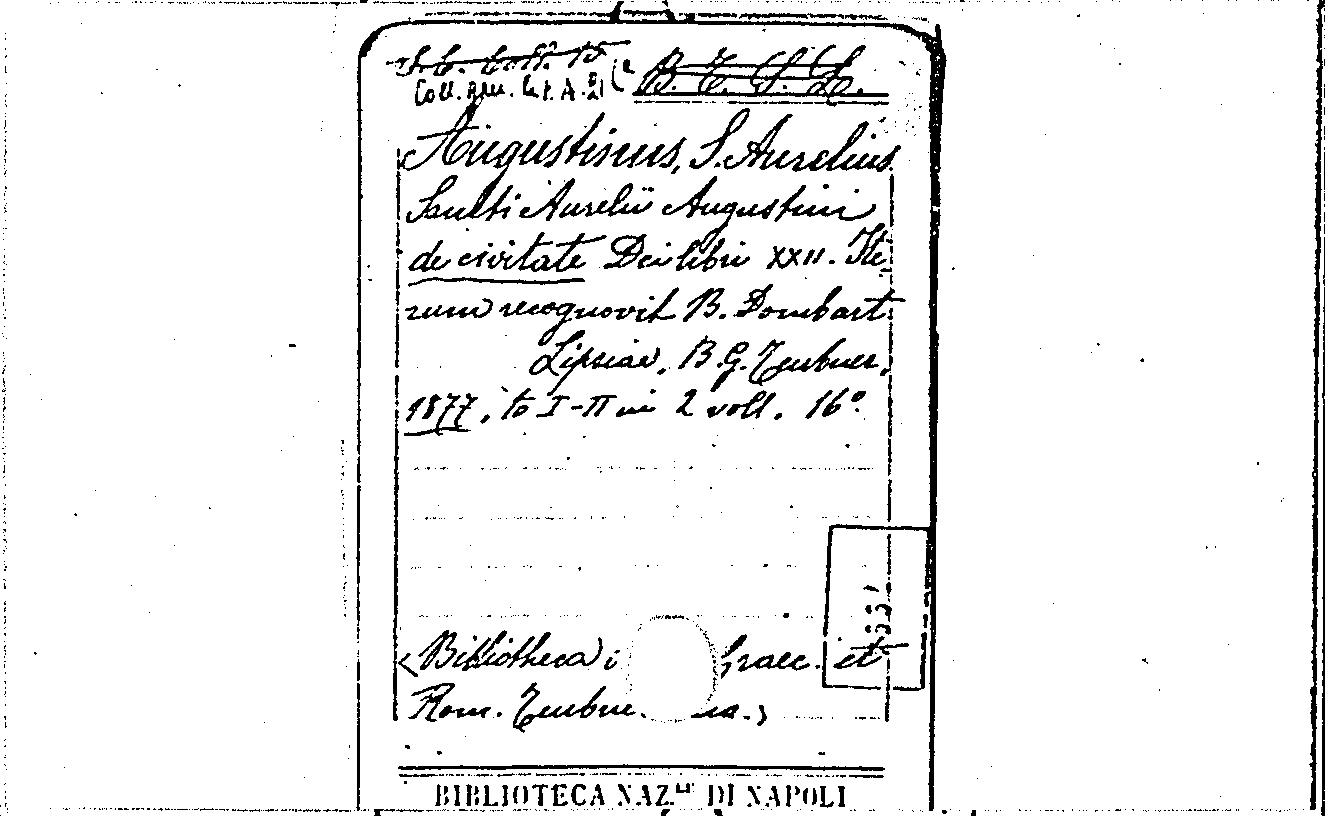 S. C. Coll. 15
Coll. gen. lat. A. 21 B. T. S. L.
Augustinus, S. Aurelius
Sancti Aurelii Augustini
de civitate Dei libri XXII. Ite
rum recognovit B. Dombart
Lipsiae, B. G. Teubner,
1877, to I-II in 2 voll. 16°.
(Bibliotheca Graec. et
Rom. Teubne
BIBLIOTECA NAZ.LE DI NAPOLI